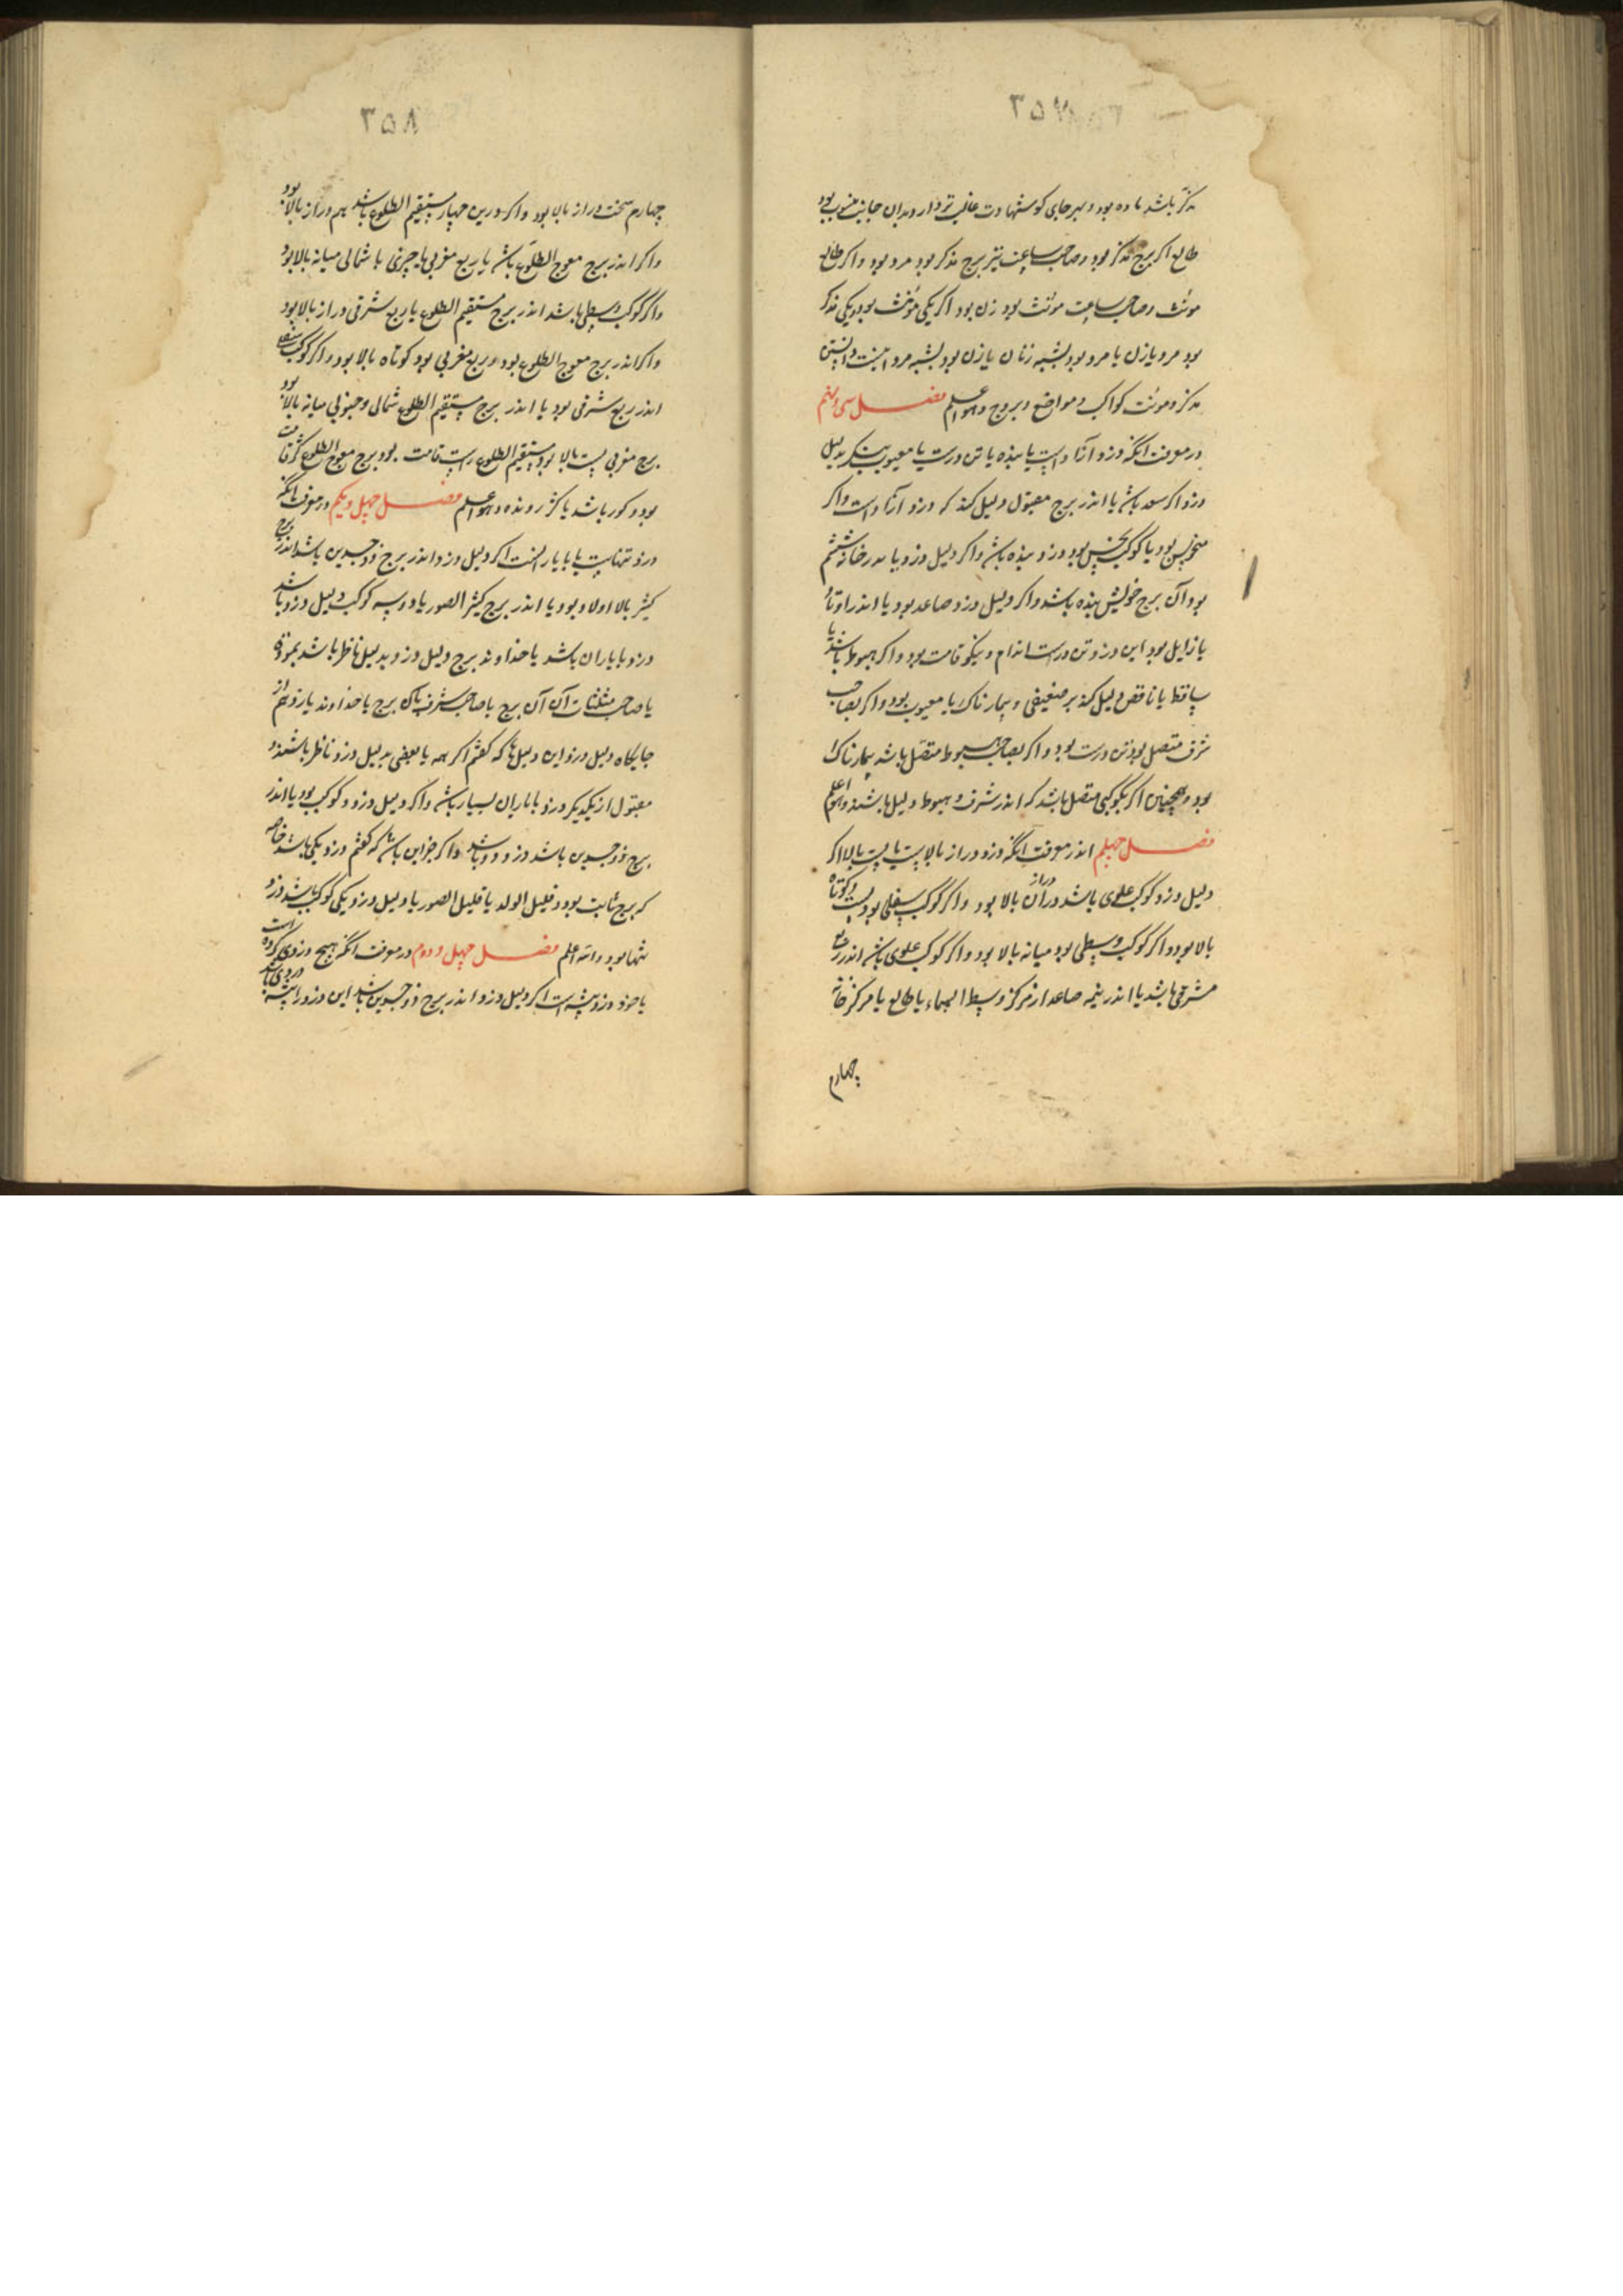 ۳۵۷
مذکر باشد ماده بود و بهر جای کو شهادت غالب تر دارد بدان جانب منسوب بود
طالع اکر برج مذکر بود و صاحب ساعت نیز برج مذکر بود مرد بود و اکر طالع
مونث و صاحب ساعت مونث بود زن بود اکر یکی مونث بود و یکی مذکر
بود مرد یا زن یا مرد بود بشبه زنان یا زن بود بشبه مرد اینست دانستن
مذکر و مونث کواکب و مواضع و بروج و هو اعلم فصل سی و نهم
در معرفت آنکه دزد آزاد است یا بنده یا تن درست یا معیوب بنکر بدلیل
دزد اکر سعد باشد یا اندر برج مقبول دلیل کند که دزد آزاد است و اکر
منحوس بود یا کوکب نحس بود دزد بنده باشد و اکر دلیل دزد یا در خانه ششم
بود آن برج خویش بنده باشد و اکر دلیل دزد صاعد بود یا اندر اوتاد
یا زایل بود این دزد تن درست اندام و نیکو قامت بود و اکر هبوط باشد یا
ساقط یا ناقص دلیل کند بر ضعیفی و بیمارناک یا معیوب بود و اکر بصاحب
شرف متصل بود تن درست بود و اکر بصاحب هبوط متصل باشد بیمارناک
بود و همچنان اکر بکوکبی متصل باشد که اندر شرف و هبوط دلیل باشند و هو اعلم
فصل چهلم اندر معرفت آنکه دزد دراز بالا یست یا پست بالا اکر
دلیل دزد کوکب علوی باشد دزد آن دراز بالا بود و اکر کوکب سفلی بود پست و کوتاه
بالا بود و اکر کوکب وسطی بود میانه بالا بود و اکر کوکب علوی باشد اندر ربع
مشرقی باشد یا اندر نیمه صاعد از مرکز وسط السماء یا طالع یا مرکز خانه
چهارم
۳۵۸
چهارم سخت دراز بالا بود و اکر درین چهار مستقیم الطلوع باشد هم دراز بالا بود
و اکر اندر برج معوج الطلوع باشد یا ربع مغربی یا جنوبی یا شمالی میانه بالا بود
و اکر کوکب وسطی باشد اندر برج مستقیم الطلوع یا ربع شرقی دراز بالا بود
و اکر اندر برج معوج الطلوع بود و ربع مغربی بود کوتاه بالا بود و اکر کوکب سفلی
اندر ربع شرقی بود یا اندر برج مستقیم الطلوع شمالی و جنوبی میانه بالا بود
برج مغربی پست بالا بود مستقیم الطلوع راست قامت بود و برج معوج الطلوع کژ قامت
بود و کور باشد یا کژ رونده و هو اعلم فصل چهل و یکم در معرفت آنکه
دزد تنهاست یا با یار است اکر دلیل دزد اندر برج ذوجسدین باشد اندر برج
کثیر الاولاد بود یا اندر برج کثیر الصور یا دو سه کوکب دلیل دزد باشد
دزد با یاران باشد یا خداوند برج دلیل دزد بدلیل ناظر باشد بمودة
یا صاحب مثلثات آن برج یا صاحب شرف آن برج یا خداوند یازدهم از
جایکاه دلیل دزد این دلیلها که کفتم اکر همه یا بعضی بدلیل دزد ناظر باشند و
مقبول از یکدیکر دزد با یاران بسیار باشد و اکر دلیل دزد دو کوکب بود یا اندر
برج ذوجسدین باشد دزد دو باشد و اکر جز این باشد که کفتم دزد یکی باشد خاصه
که برج ثابت بود و قلیل الولد یا قلیل الصور یا دلیل دزد یکی کوکب باشد دزد
تنها بود و الله اعلم فصل چهل و دوم در معرفت آنکه هیچ دزدی کرده است
یا خود دزد پیشه است اکر دلیل دزد اندر برج ذوجسدین باشد این دزد را پیشه دزدی باشد